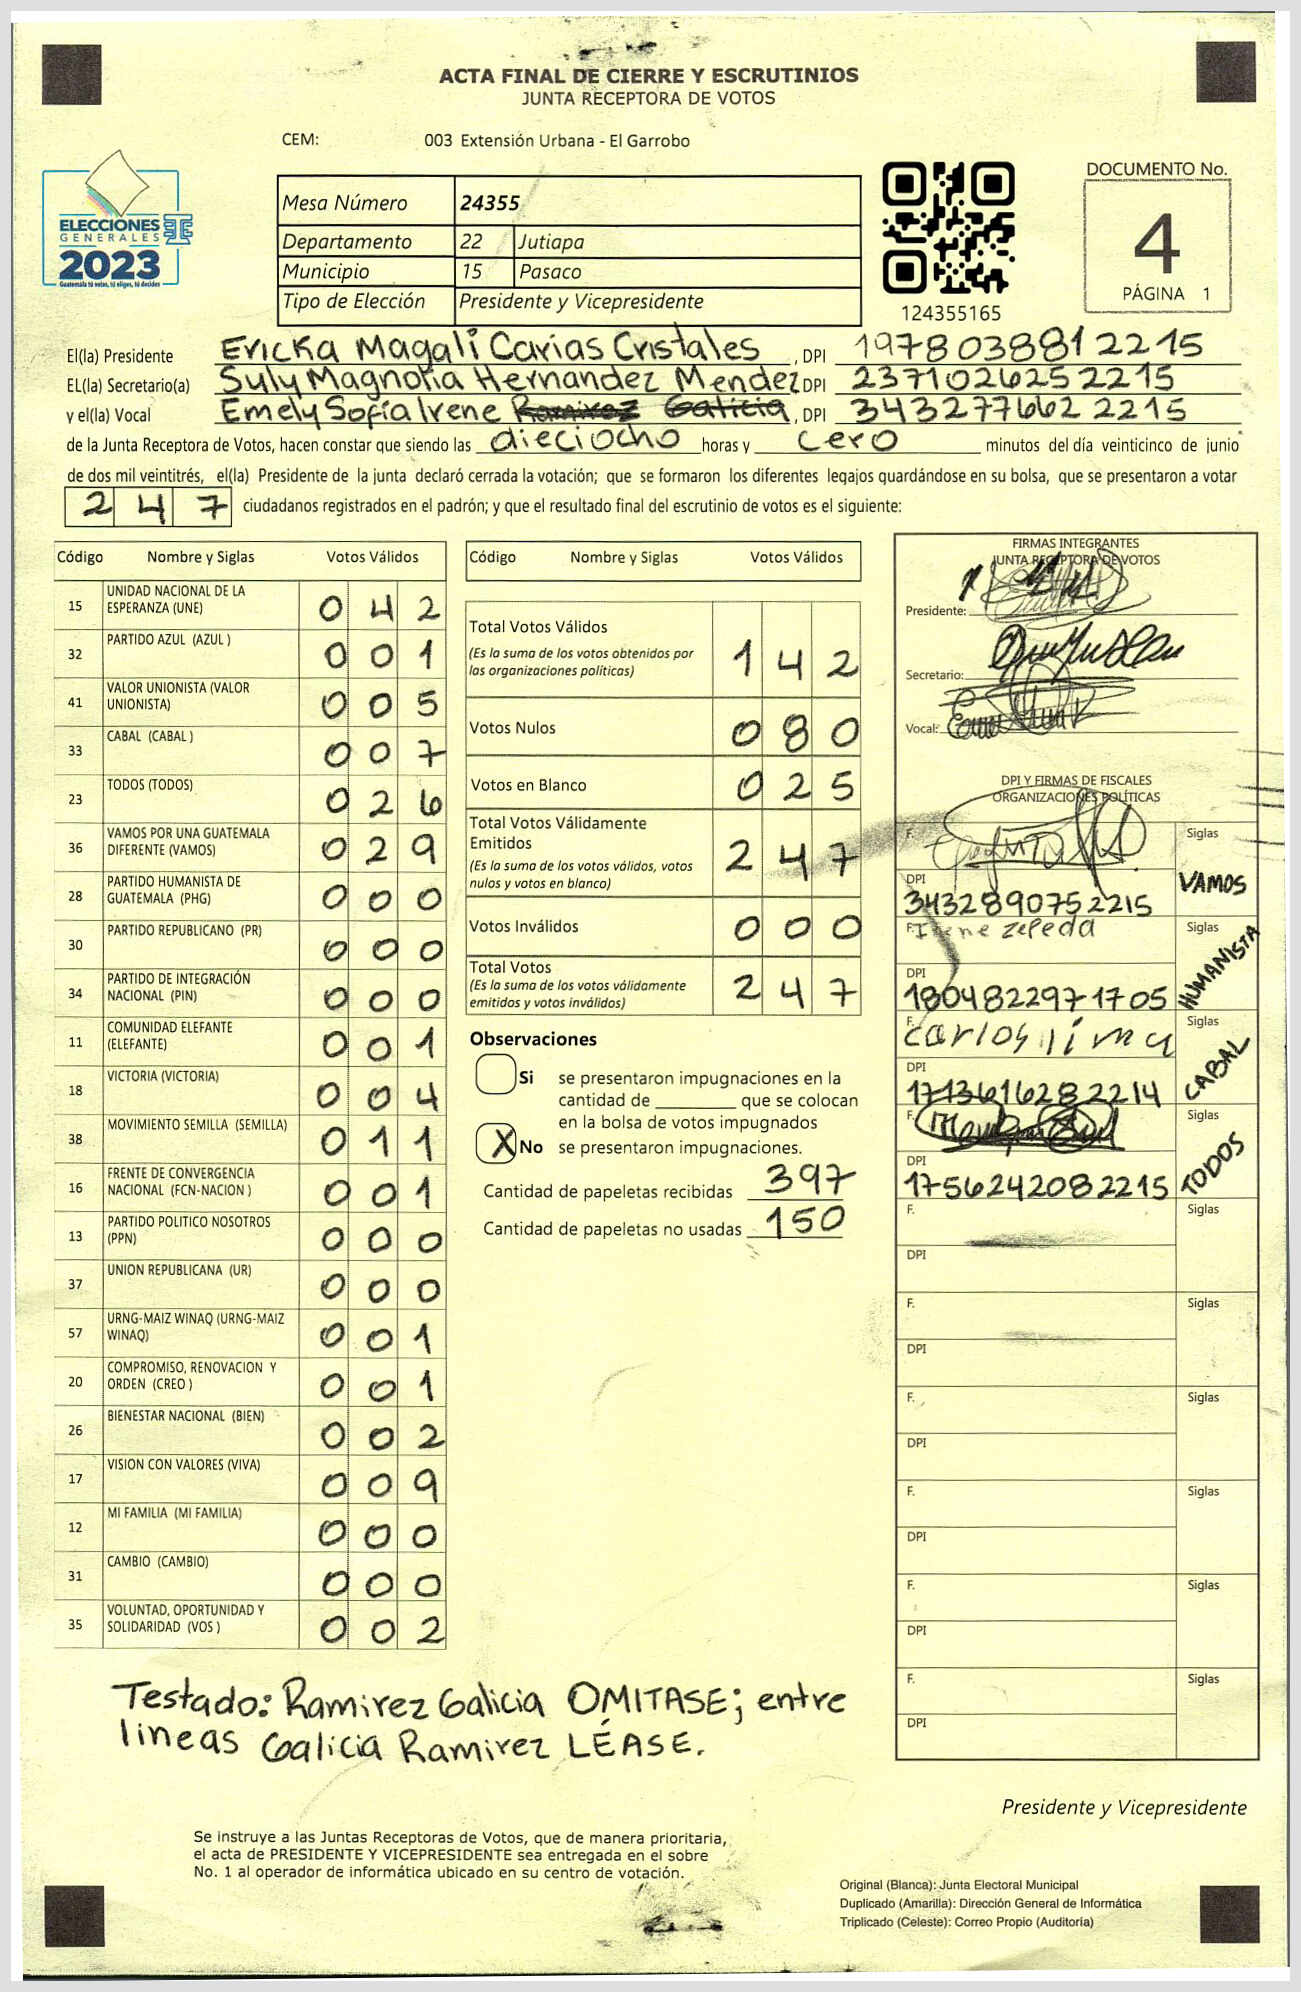 ACTA FINAL DE CIERRE Y ESCRUTINIOS
JUNTA RECEPTORA DE VOTOS
CEM: 003 Extensión Urbana - El Garrobo
ELECCIONES
GENERALES
2023
Guatemala tú votas, tú eliges, tú decides
Mesa Número 24355
Departamento 22 Jutiapa
Municipio 15 Pasaco
Tipo de Elección Presidente y Vicepresidente
124355165
DOCUMENTO No.
4
PÁGINA 1
El(la) Presidente Ericka Magali Carias Cristales, DPI 1978038812215
EL(la) Secretario(a) Suly Magnolia Hernandez Mendez DPI 2371026252215
y el(la) Vocal Emely Sofía Irene Ramirez Galicia, DPI 3432776622215
de la Junta Receptora de Votos, hacen constar que siendo las dieciocho horas y cero minutos del día veinticinco de junio
de dos mil veintitrés, el(la) Presidente de la junta declaró cerrada la votación; que se formaron los diferentes legajos guardándose en su bolsa, que se presentaron a votar
247 ciudadanos registrados en el padrón; y que el resultado final del escrutinio de votos es el siguiente:
Código Nombre y Siglas Votos Válidos
15 UNIDAD NACIONAL DE LA ESPERANZA (UNE) 0 4 2
32 PARTIDO AZUL (AZUL ) 0 0 1
41 VALOR UNIONISTA (VALOR UNIONISTA) 0 0 5
33 CABAL (CABAL ) 0 0 7
23 TODOS (TODOS) 0 2 6
36 VAMOS POR UNA GUATEMALA DIFERENTE (VAMOS) 0 2 9
28 PARTIDO HUMANISTA DE GUATEMALA (PHG) 0 0 0
30 PARTIDO REPUBLICANO (PR) 0 0 0
34 PARTIDO DE INTEGRACIÓN NACIONAL (PIN) 0 0 0
11 COMUNIDAD ELEFANTE (ELEFANTE) 0 0 1
18 VICTORIA (VICTORIA) 0 0 4
38 MOVIMIENTO SEMILLA (SEMILLA) 0 1 1
16 FRENTE DE CONVERGENCIA NACIONAL (FCN-NACION ) 0 0 1
13 PARTIDO POLITICO NOSOTROS (PPN) 0 0 0
37 UNION REPUBLICANA (UR) 0 0 0
57 URNG-MAIZ WINAQ (URNG-MAIZ WINAQ) 0 0 1
20 COMPROMISO, RENOVACION Y ORDEN (CREO ) 0 0 1
26 BIENESTAR NACIONAL (BIEN) 0 0 2
17 VISION CON VALORES (VIVA) 0 0 9
12 MI FAMILIA (MI FAMILIA) 0 0 0
31 CAMBIO (CAMBIO) 0 0 0
35 VOLUNTAD, OPORTUNIDAD Y SOLIDARIDAD (VOS ) 0 0 2
Código Nombre y Siglas Votos Válidos
Total Votos Válidos 1 4 2
(Es la suma de los votos obtenidos por
las organizaciones políticas)
Votos Nulos 0 8 0
Votos en Blanco 0 2 5
Total Votos Válidamente
Emitidos 2 4 7
(Es la suma de los votos válidos, votos
nulos y votos en blanco)
Votos Inválidos 0 0 0
Total Votos 2 4 7
(Es la suma de los votos válidamente
emitidos y votos inválidos)
Observaciones
Si se presentaron impugnaciones en la
cantidad de ________ que se colocan
en la bolsa de votos impugnados
X No se presentaron impugnaciones.
Cantidad de papeletas recibidas 397
Cantidad de papeletas no usadas 150
FIRMAS INTEGRANTES
JUNTA RECEPTORA DE VOTOS
Presidente:
Secretario:
Vocal:
DPI Y FIRMAS DE FISCALES
ORGANIZACIONES POLÍTICAS
F. Siglas
DPI VAMOS
3432890752215
F. Irene Zepeda Siglas
DPI HUMANISTA
1804822971705
F. Carlos lima Siglas
DPI CABAL
1713616282214
F. Siglas
DPI TODOS
1756242082215
F. Siglas
DPI
F. Siglas
DPI
F. Siglas
DPI
F. Siglas
DPI
F. Siglas
DPI
F. Siglas
DPI
Testado: Ramirez Galicia OMITASE; entre
lineas Galicia Ramirez LÉASE.
Presidente y Vicepresidente
Se instruye a las Juntas Receptoras de Votos, que de manera prioritaria,
el acta de PRESIDENTE Y VICEPRESIDENTE sea entregada en el sobre
No. 1 al operador de informática ubicado en su centro de votación.
Original (Blanca): Junta Electoral Municipal
Duplicado (Amarilla): Dirección General de Informática
Triplicado (Celeste): Correo Propio (Auditoría)